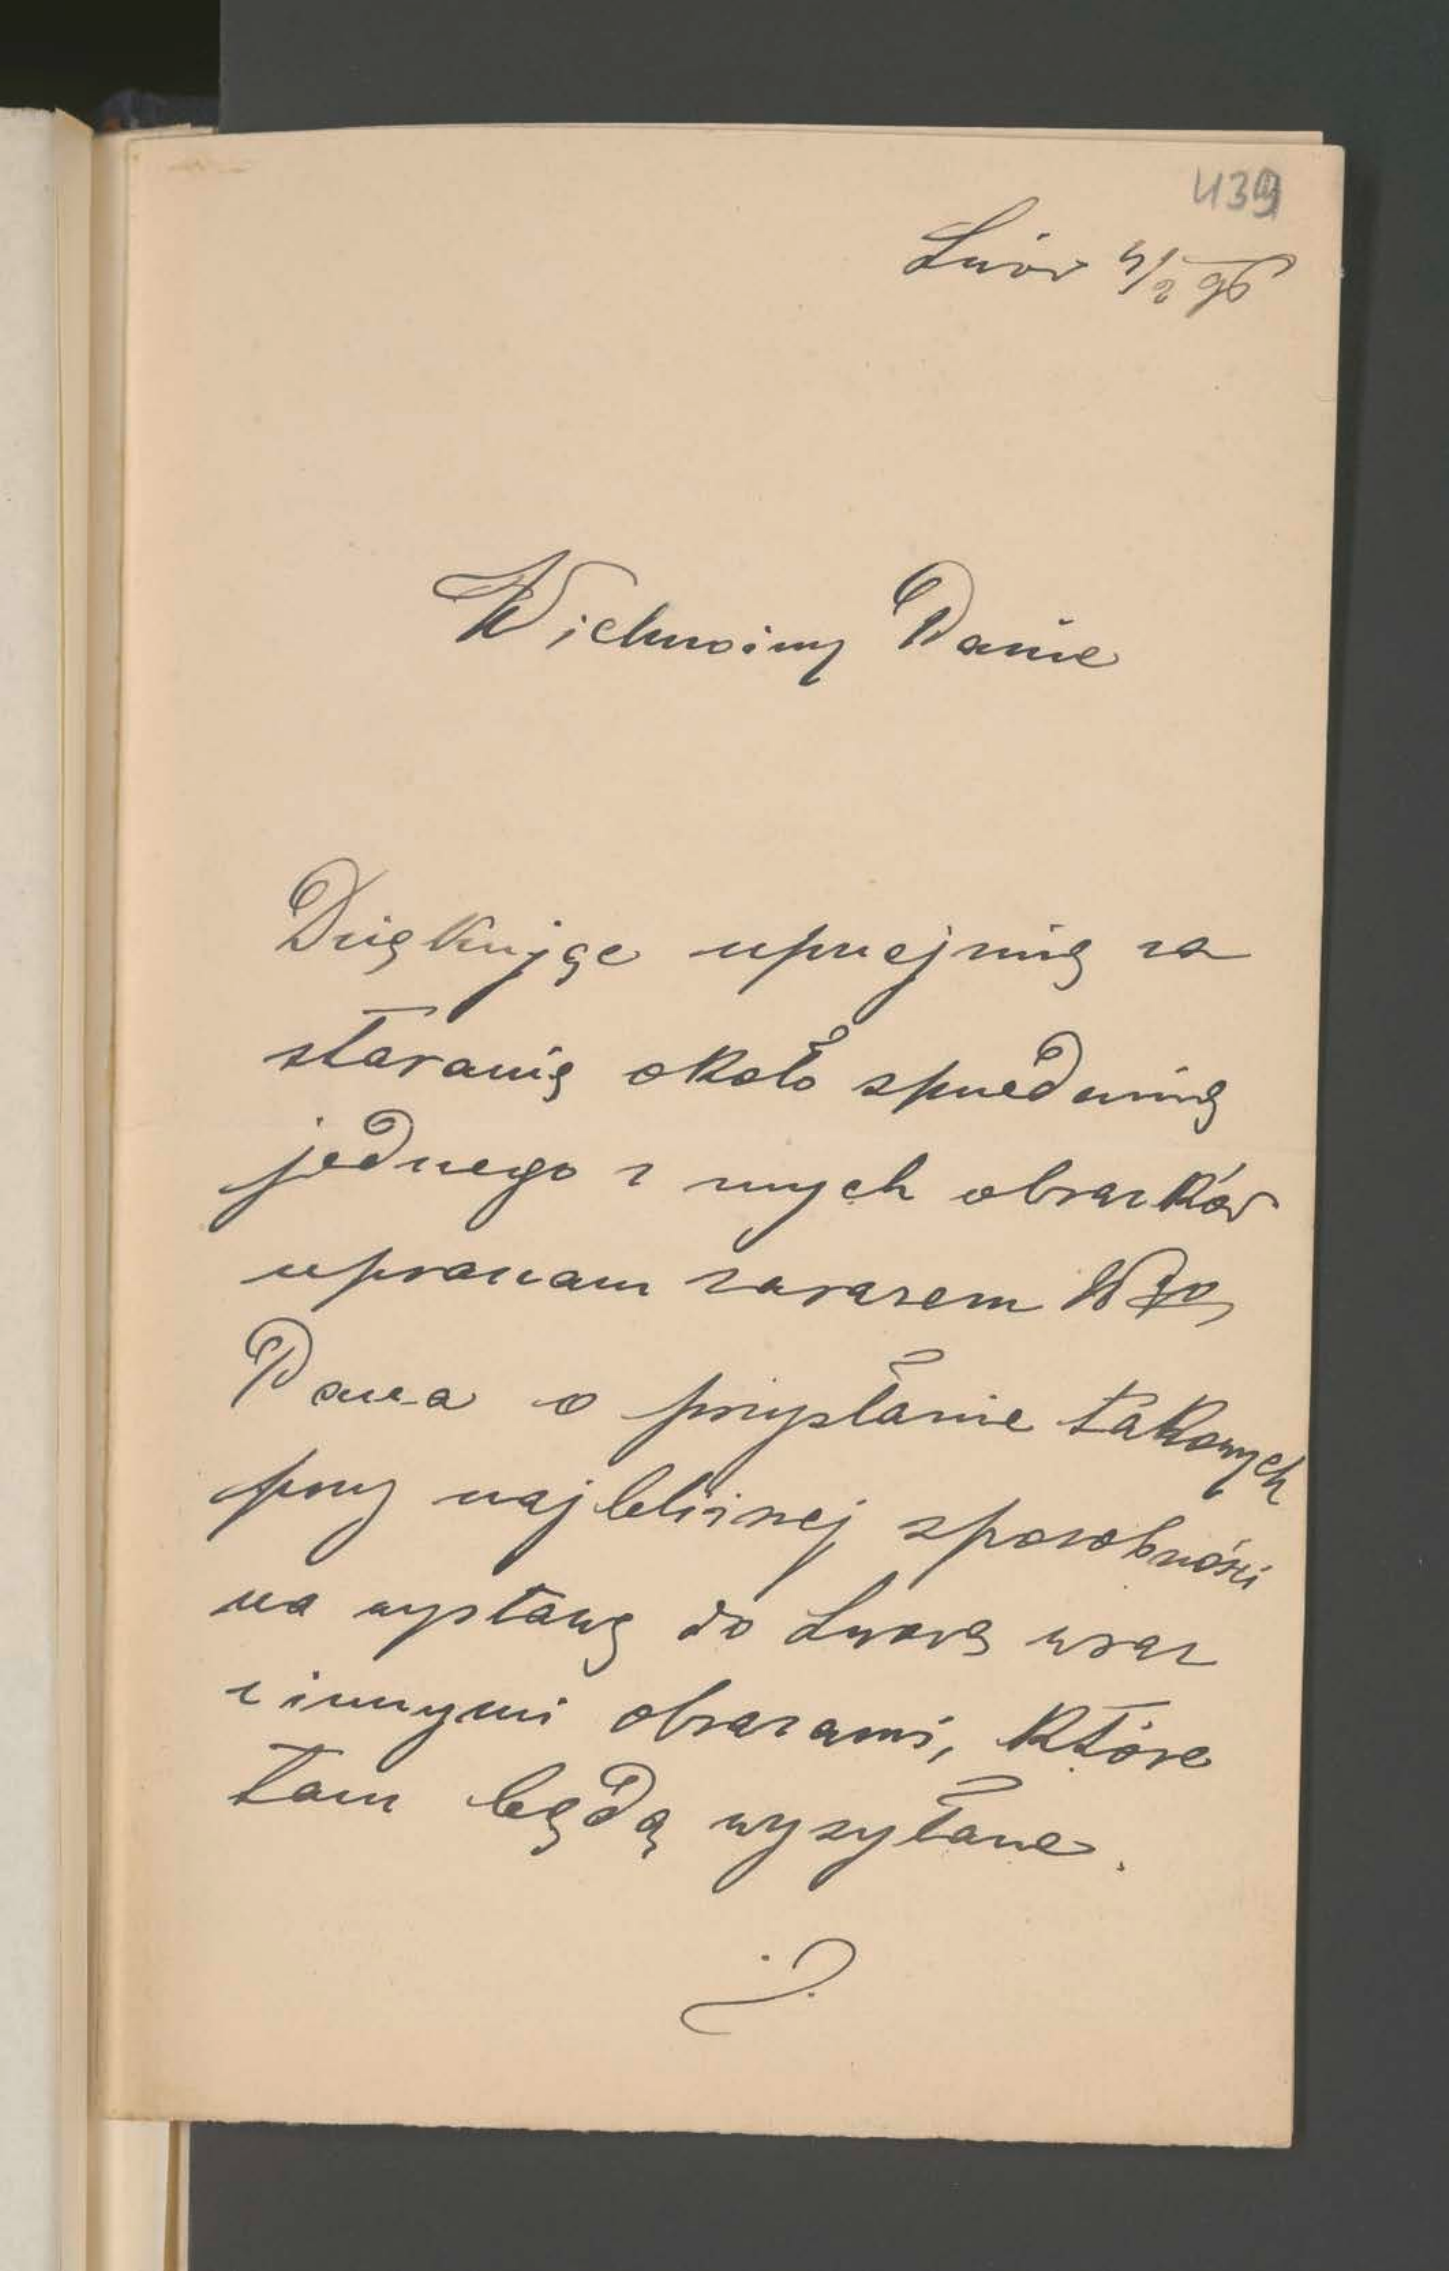 439
Lwów 4/2 96
Wielmożny Panie
Dziękując uprzejmię za
staranię około sprzedanię
jednego z mych obrazków
upraszam zarazem WGo
Pana o przysłanie takowych
przy najbliższej sposobności
na wystawę do Lwowa wraz
z innymi obrazami, które
tam będą wysyłane.